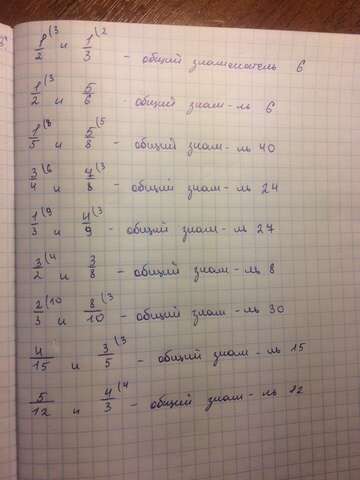 1/2 (3 и 1/3 (2 - общий знаменатель 6
1/2 (3 и 5/6 - общий знам-ль 6
1/5 (8 и 5/8 (5 - общий знам-ль 40
3/4 (6 и 4/8 (3 - общий знам-ль 24
1/3 (9 и 4/9 (3 - общий знам-ль 27
3/2 (4 и 3/8 - общий знам-ль 8
2/3 (10 и 8/10 (3 - общий знам-ль 30
4/15 и 3/5 (3 - общий знам-ль 15
5/12 и 4/3 (4 - общий знам-ль 12